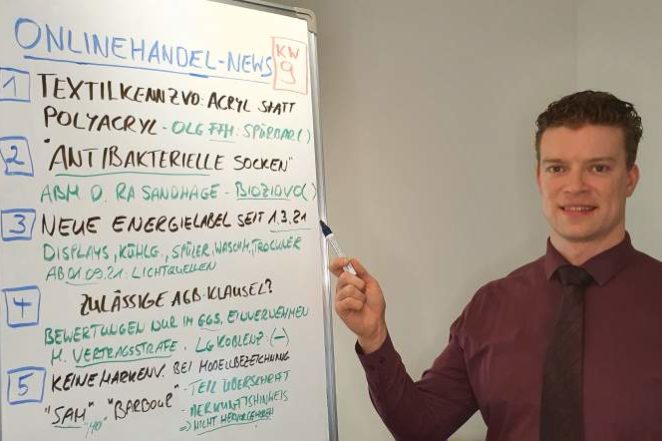 ONLINEHANDEL-NEWS
KW 9
1 TEXTILKENNZVO: ACRYL STATT
POLYACRYL - OLG FFM: SPÜRBAR ( )
2 "ANTIBAKTERIELLE SOCKEN"
ABM D. RA SANDHAGE - BIOZIDVO ( )
3 NEUE ENERGIELABEL SEIT 1.3.21
DISPLAYS, KÜHLG., SPÜLER, WASCHM, TROCKNER
AB 01.09.21: LICHTQUELLEN
4 ZULÄSSIGE AGB-KLAUSEL?
BEWERTUNGEN NUR IM GGS. EINVERNEHMEN
M. VERTRAGSSTRAFE. LG KOBLENZ: (-)
5 KEINE MARKENV. BEI MODELLBEZEICHNUNG
"SAM" "BARBOUR" - TEIL ÜBERSCHRIFT
- HERKUNFTSHINWEIS
⇒ NICHT HERVORGEHOBEN